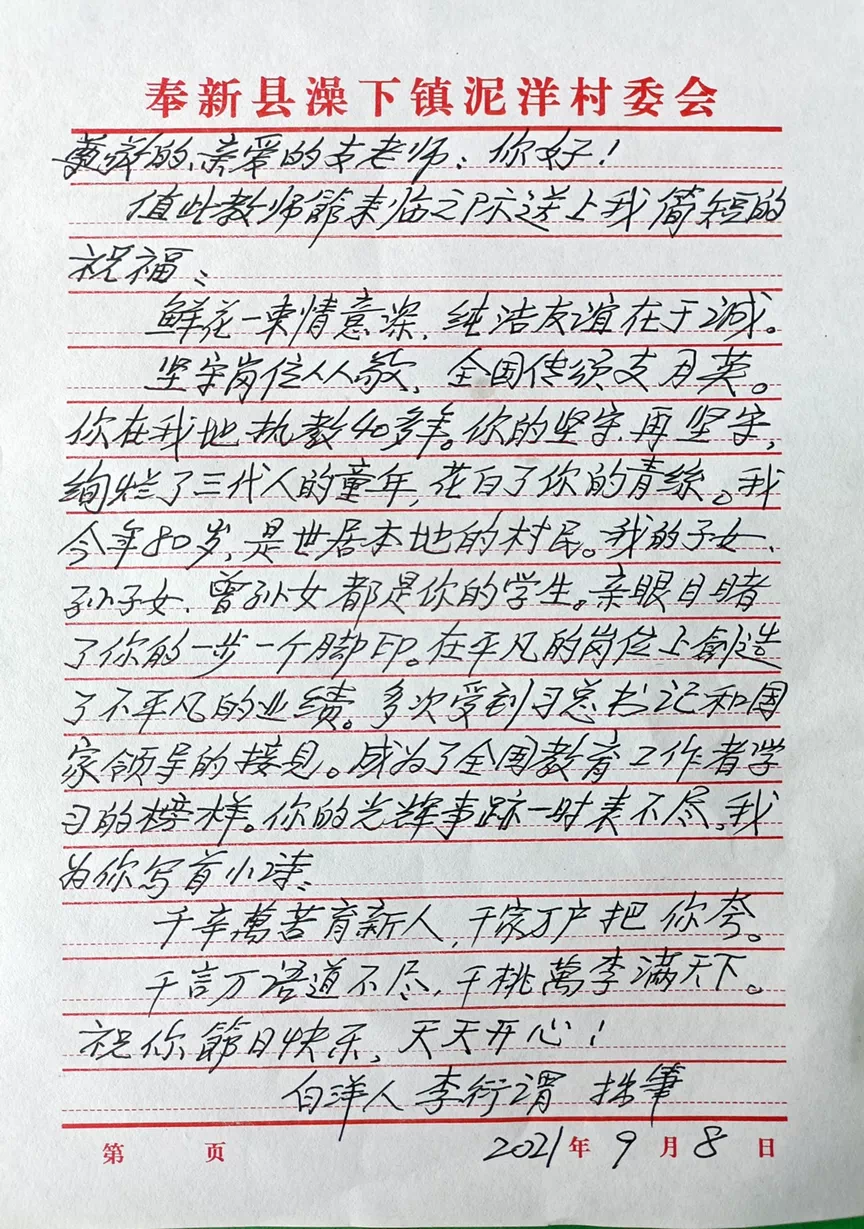 奉新县澡下镇泥洋村委会
尊敬的、亲爱的支老师：你好！
值此教师節来临之际送上我简短的
祝福：
鲜花一束情意深，纯洁友谊在于诚。
坚守岗位人人敬，全国传颂支月英。
你在我地执教40多年。你的坚守、再坚守，
绚烂了三代人的童年，花白了你的青丝。我
今年80岁，是世居本地的村民。我的子女、
孙子女、曾孙女都是你的学生。亲眼目睹
了你的一步一个脚印。在平凡的岗位上創造
了不平凡的业绩。多次受到习总书记和国
家领导的接见。成为了全国教育工作者学
习的榜样。你的光辉事跡一时表不尽，我
为你写首小诗：
千辛萬苦育新人，千家万户把你夸。
千言万语道不尽，千桃萬李满天下。
祝你節日快乐、天天开心！
白洋人 李衍谓 拙筆
第 页 2021年9月8日